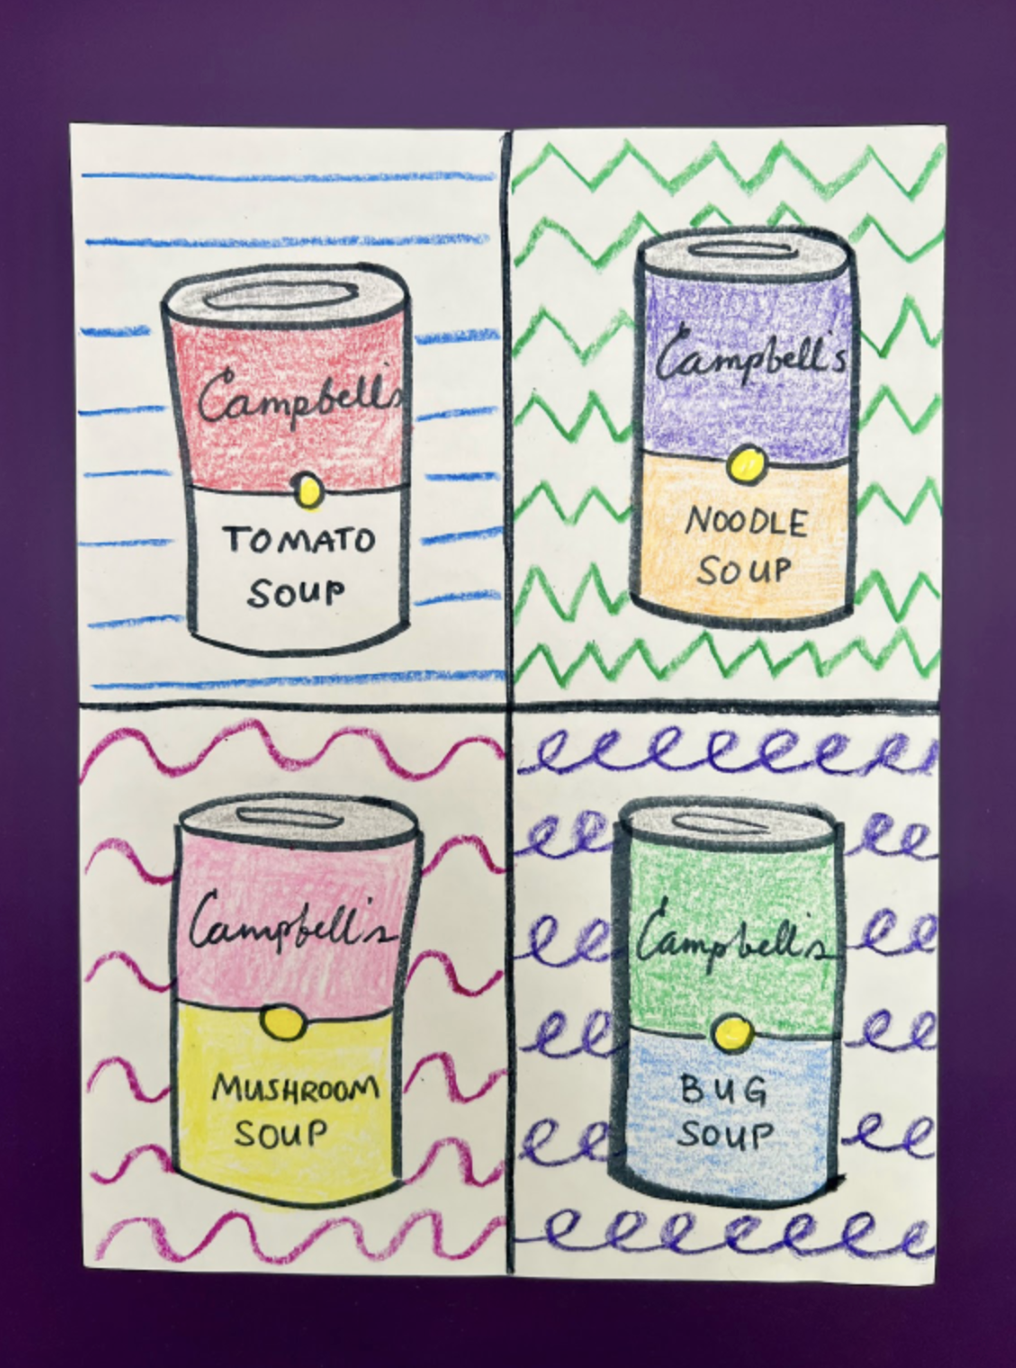 Campbell's
TOMATO
SOUP
Campbell's
NOODLE
SOUP
Campbell's
MUSHROOM
SOUP
Campbell's
BUG
SOUP